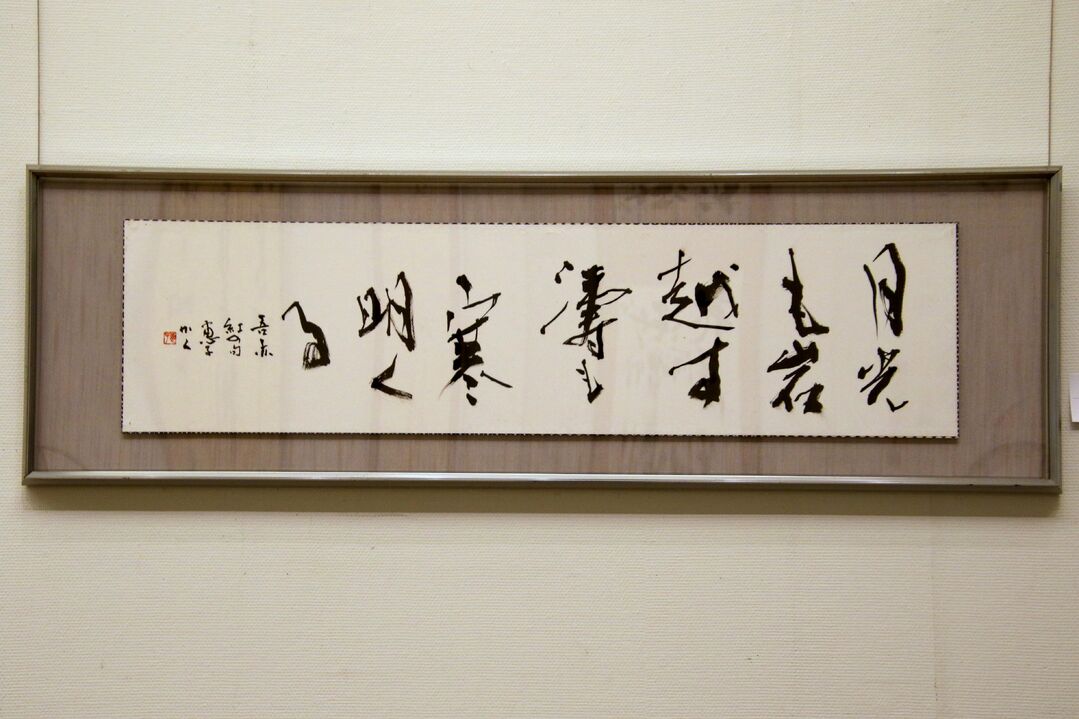 月光
も岩
越す
濤も
寒
明く
る
吾亦
紅の句